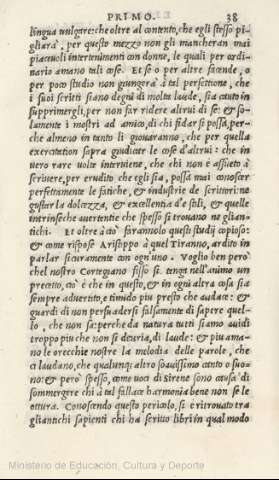 PRIMO. 38
lingua uulgare: che oltre al contento, che egli stesso pi-
gliarà, per questo mezzo non gli mancheran mai
piaceuoli interteniménti con donne, le quali per ordi-
nario amano tali cose. Et se o per altre facende, o
per poco studio non giungerà à tal perfettione, che
i suoi scritti siano degni di molta laude, sia cauto in
supprimergli, per non far ridere altrui di se: & so-
lamente i mostri ad amico, di chi fidar si possa, per-
che almeno in tanto li giouaranno, che per quella
exercitation saprà giudicar le cose d'altrui: che in
uero rare uolte interuiene, che chi non è assueto à
scriuere, per erudito che egli sia, possa mai conoscer
perfettamente le fatiche, & industrie de scrittori: ne
gustar la dolcezza, & excellentia de stili, & quelle
intrinseche auertentie che spesso si trouano ne gli an-
tichi. Et oltre à ciò farannolo questi studij copioso:
& come rispose Aristippo à quel Tiranno, ardito in
parlar sicuramente con ogn'uno. Voglio ben però
chel nostro Cortegiano fisso si tenga nell'animo un
precetto, ciò è che in questo, & in ogni altra cosa sia
sempre aduertito, e timido piu presto che audace: &
guardi di non persuadersi falsamente di saper quel-
lo, che non sa: perche da natura tutti siamo auidi
troppo piu che non si deuria, di laude: & piu ama-
no le orecchie nostre la melodia delle parole, che
ci laudano, che qualunque altro soauissimo canto o suo-
no: & però spesso, come uoci di Sirene sono causa di
sommergere chi à tal fallace harmonia bene non se le
ottura. Conoscendo questo pericolo, si è ritrouato tra
gli antichi sapienti chi ha scritto libri in qual modo
Ministerio de Educación, Cultura y Deporte